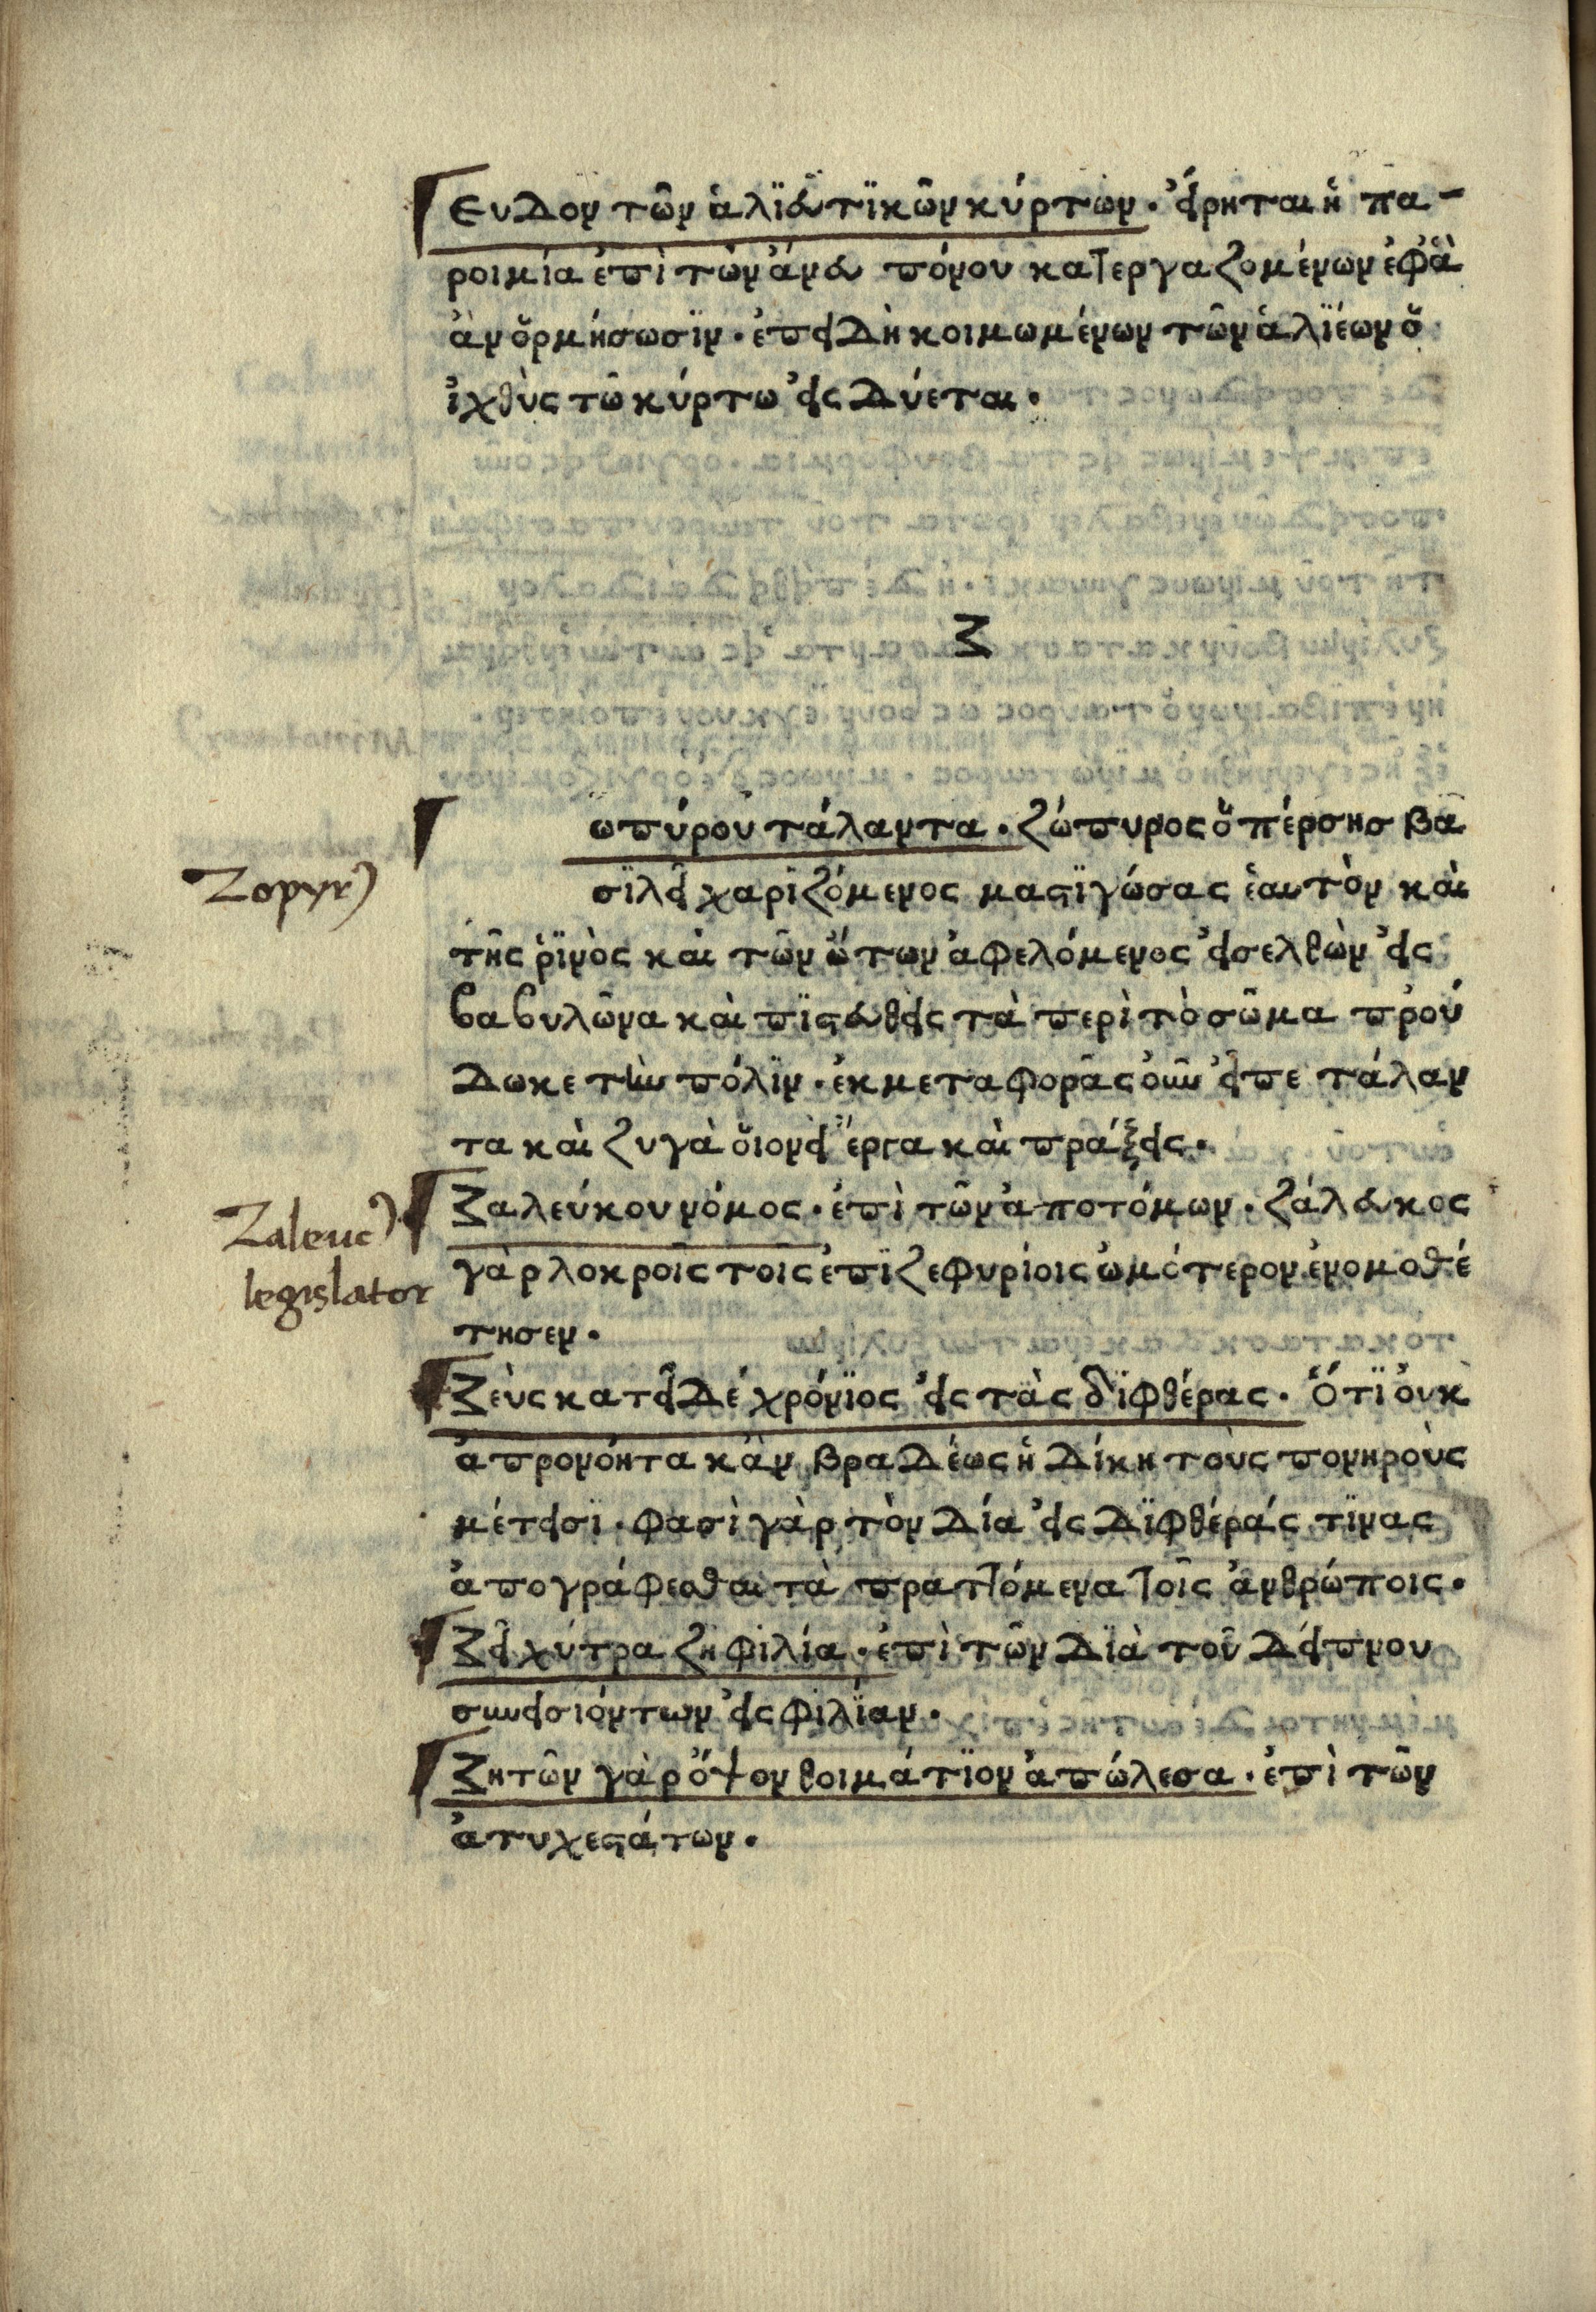 Ευδον τῶν ἁλϊευτϊκῶν κύρτων. ἐίρηται ἡ πα-
ροιμία ἐπὶ τῶν ἄνευ πόνου κατεργαζομένων ἐφ ἃ
ἂν ὁρμήσωσϊν. ἐπειδὴ κοιμωμένων τῶν ἁλϊέων ὁ
ἰχθὺς τῶ κύρτω ἐισδύεται.
Ζ
ωπύρου τάλαντα. ζώπυρος ὁ πέρσησ βα
Zopyrus
σϊλεῖ χαριζόμενος μαστϊγώσας ἑαυτὸν καὶ
τῆς ῥϊνὸς καὶ τῶν ὤτων ἀφελόμενος ἐισελθὼν ἐις
βαβυλῶνα καὶ πϊστευθεὶς τὰ περὶ τὸ σῶμα πρού
δωκε τὴν πόλϊν. ἐκ μεταφορᾶς οὖν εἶπε τάλαν
τα καὶ ζυγὰ ὁιονεὶ ἔργα καὶ πράξεις.
Ζαλεύκου νόμος. ἐπὶ τῶν ἀποτόμων. ζάλευκος
Zaleucus
γὰρ λοκροῖς τοῖς ἐπϊζεφυρίοις ὠμότερον ἐνομοθέ
legislator
τησεν.
Ζεὺς κατεῖδέ χρόνϊος ἐις τὰς δϊφθέρας. Ὅτϊ ὀυκ
ἀπρονόητα κἂν βραδέως ἡ δίκη τοὺς πονηροὺς
μέτεισϊ. φασὶ γὰρ τὸν Δία ἐις δϊφθέράς τϊνας
ἀπογράφεσθαι τὰ πραττόμενα τοῖς ἀνθρώποις.
Ζεῖ χύτρα ζῆ φϊλία. ἐπὶ τῶν δϊὰ τοῦ δείπνου
συνεισιόντων ἐις φϊλίαν.
Ζητῶν γὰρ ὄψον θοιμάτϊον ἀπώλεσα. ἐπὶ τῶν
ἀτυχεστάτων.